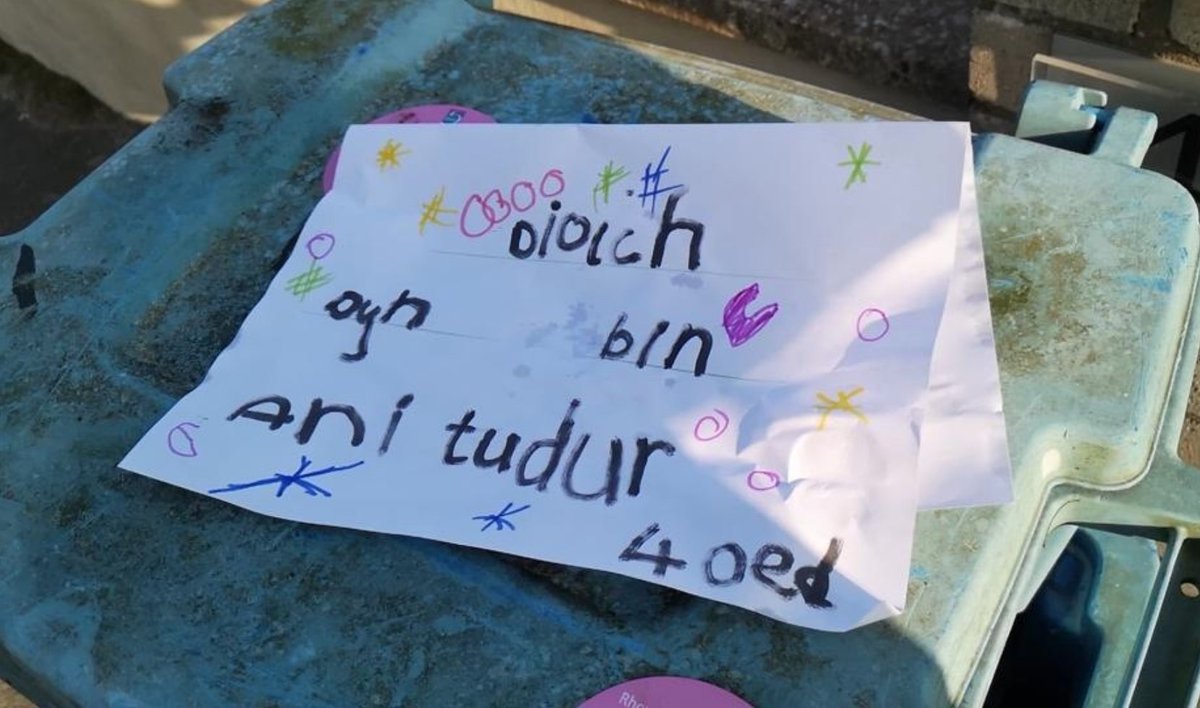 Diolch
dyn bin
Ani tudur
4 oed